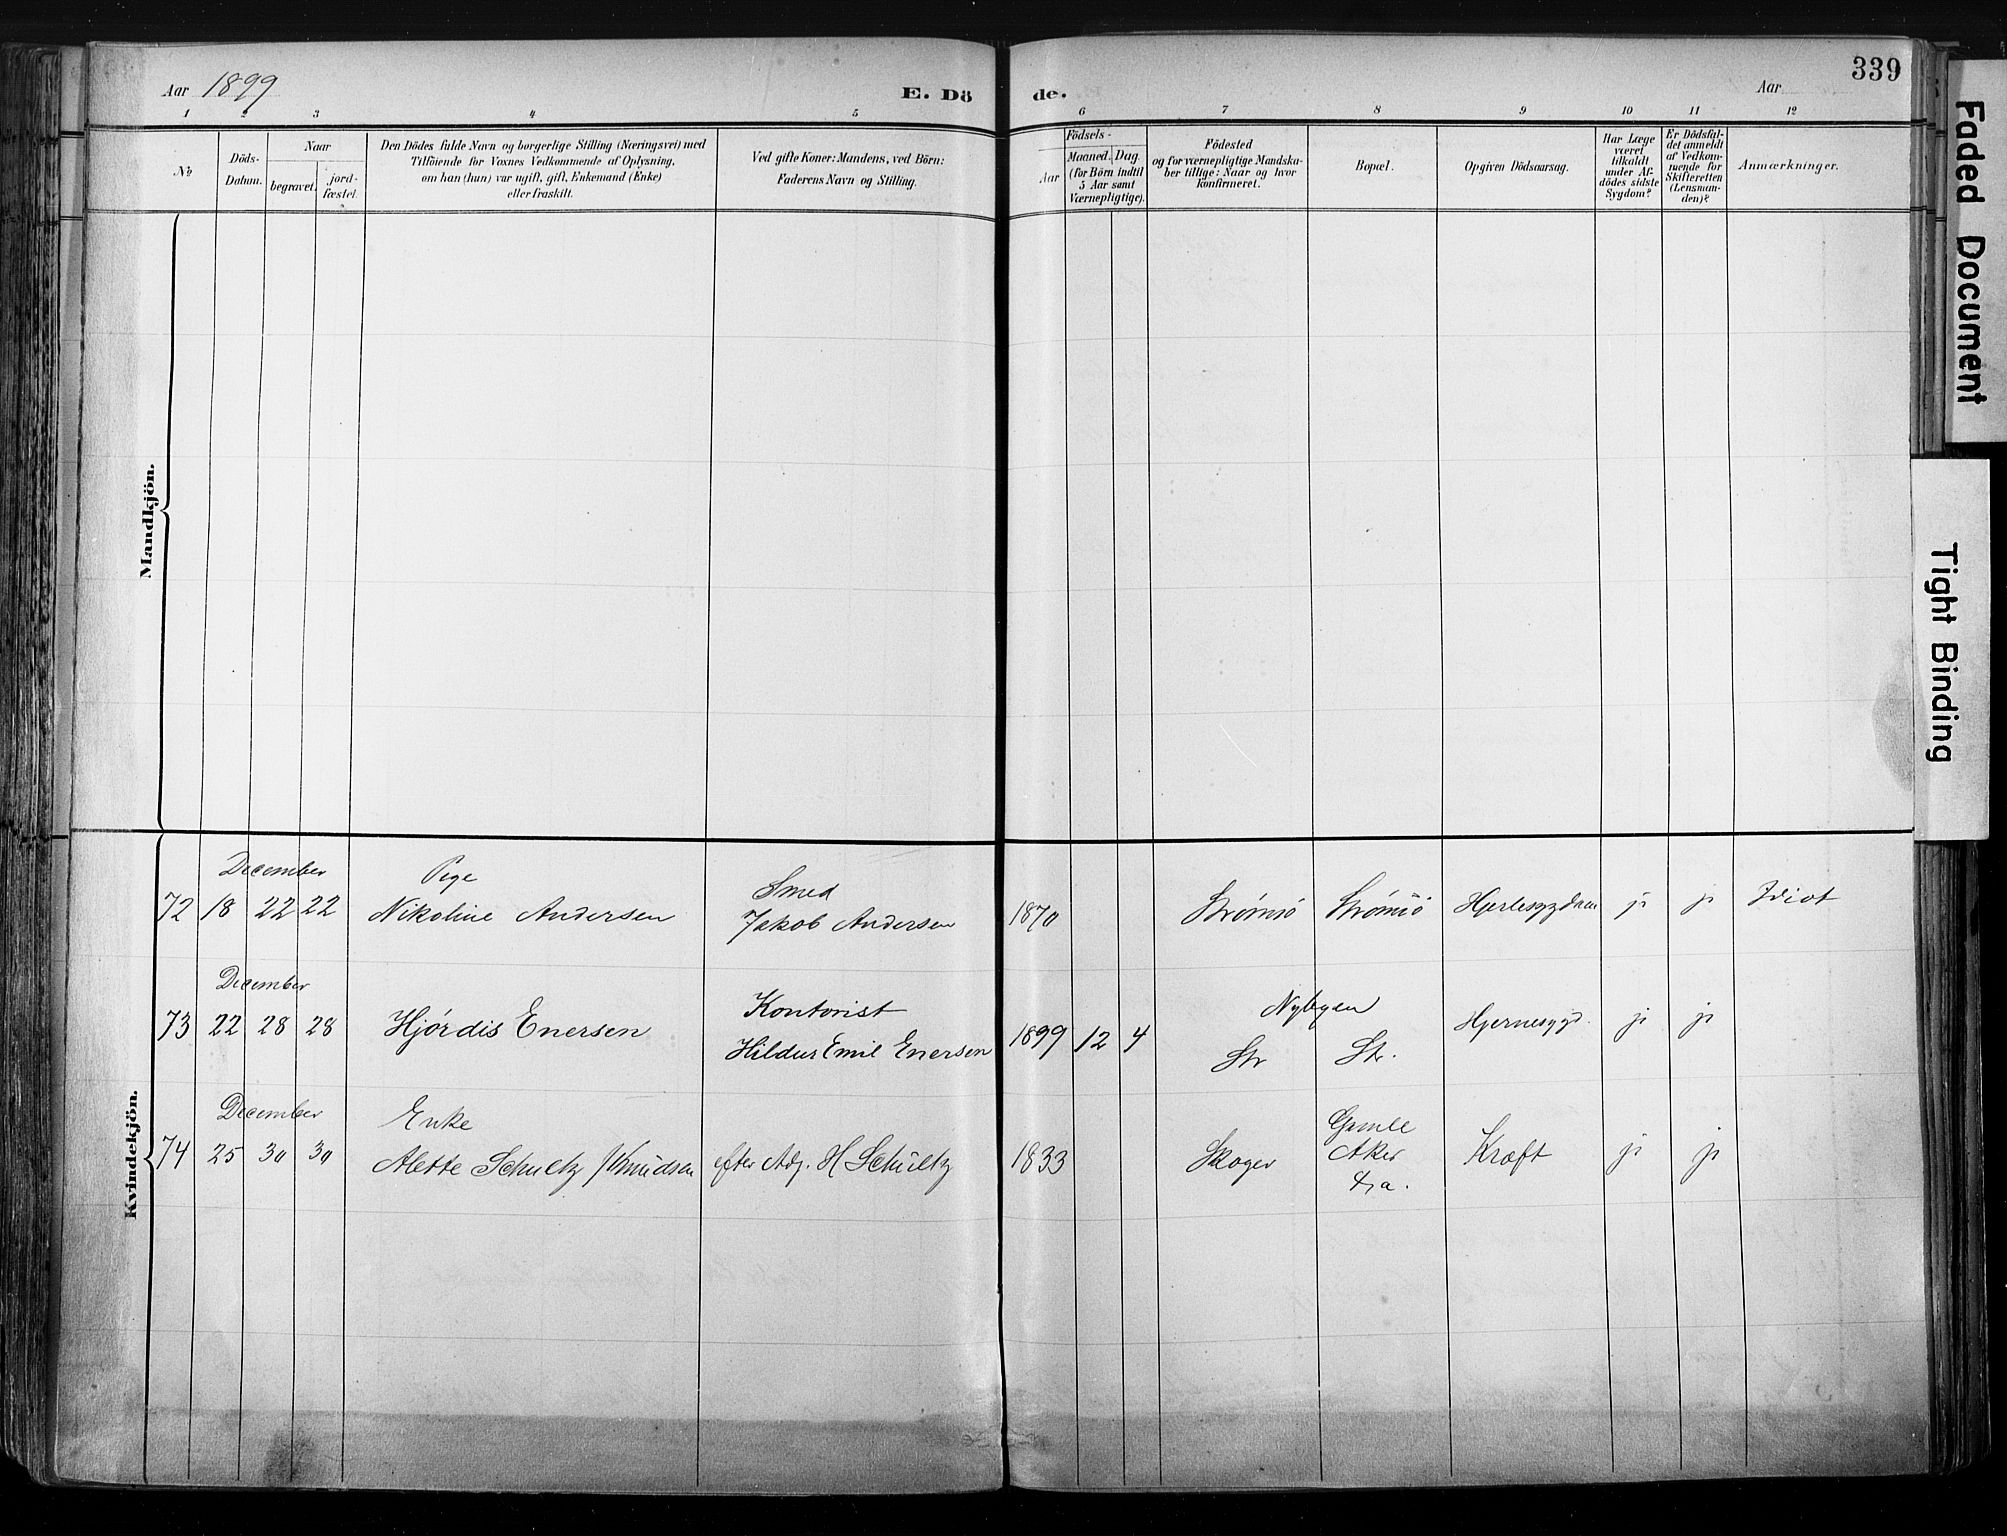 Aar 1899
E. Dö
de.
Aar
339
1 2 3 4 5 6 7 8 9 10 11 12
№
Döds-
Datum.
Naar
begravet.
jord-
fæstet.
Den Dödes fulde Navn og borgerlige Stilling (Næringsvei) med
Tilföiende for Voxnes Vedkommende af Oplysning,
om han (hun) var ugift, gift, Enkemand (Enke)
eller fraskilt.
Ved gifte Koner: Mandens, ved Börn:
Faderens Navn og Stilling.
Födsels-
Aar
Maaned. Dag
(for Börn indtil
5 Aar samt
Værnepligtige).
Födested
og for værnepligtige Mandska-
ber tillige: Naar og hvor
konfirmeret.
Bopæl.
Opgiven Dödsaarsag.
Har Læge
været
tilkaldt
under Af-
dödes sidste
Sygdom?
Er Dödsfal-
det anmeldt
af Vedkom-
mende for
Skifteretten
(Lensman-
den)?
Anmærkninger.
Mandkjön.
Kvindekjön.
December
Pige
Smed
72 18 22 22 Nikoline Andersen Jakob Andersen 1870 Strømsö Strømsö Hjertesygdom ja ja Idiot
December
Kontorist
Nybyen
73 22 28 28 Hjórdis Enersen Hildus Emil Enersen 1899 12 4 Str Str. Hjernesygd. ja ja
December
Enke
Gamle
74 25 30 30 Alette Schultz f Knudsen efter Adj. H Schultz 1833 Skoger Aker Kræft ja ja
Faded Document
Tight Binding